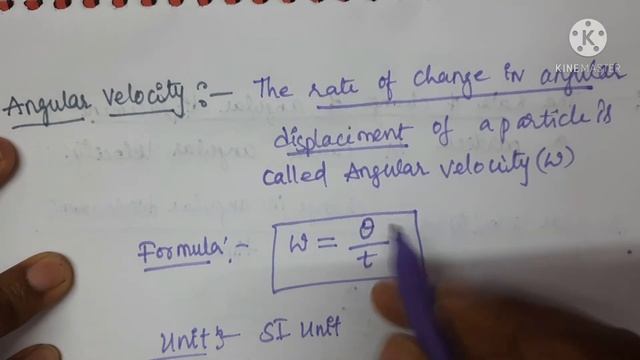 KINEMASTER
Angular velocity :- The rate of change in angular
displaciment of a particle is
called Angular velocity (ω)
Formula :- ω = θ/t
Unit :- SI Unit